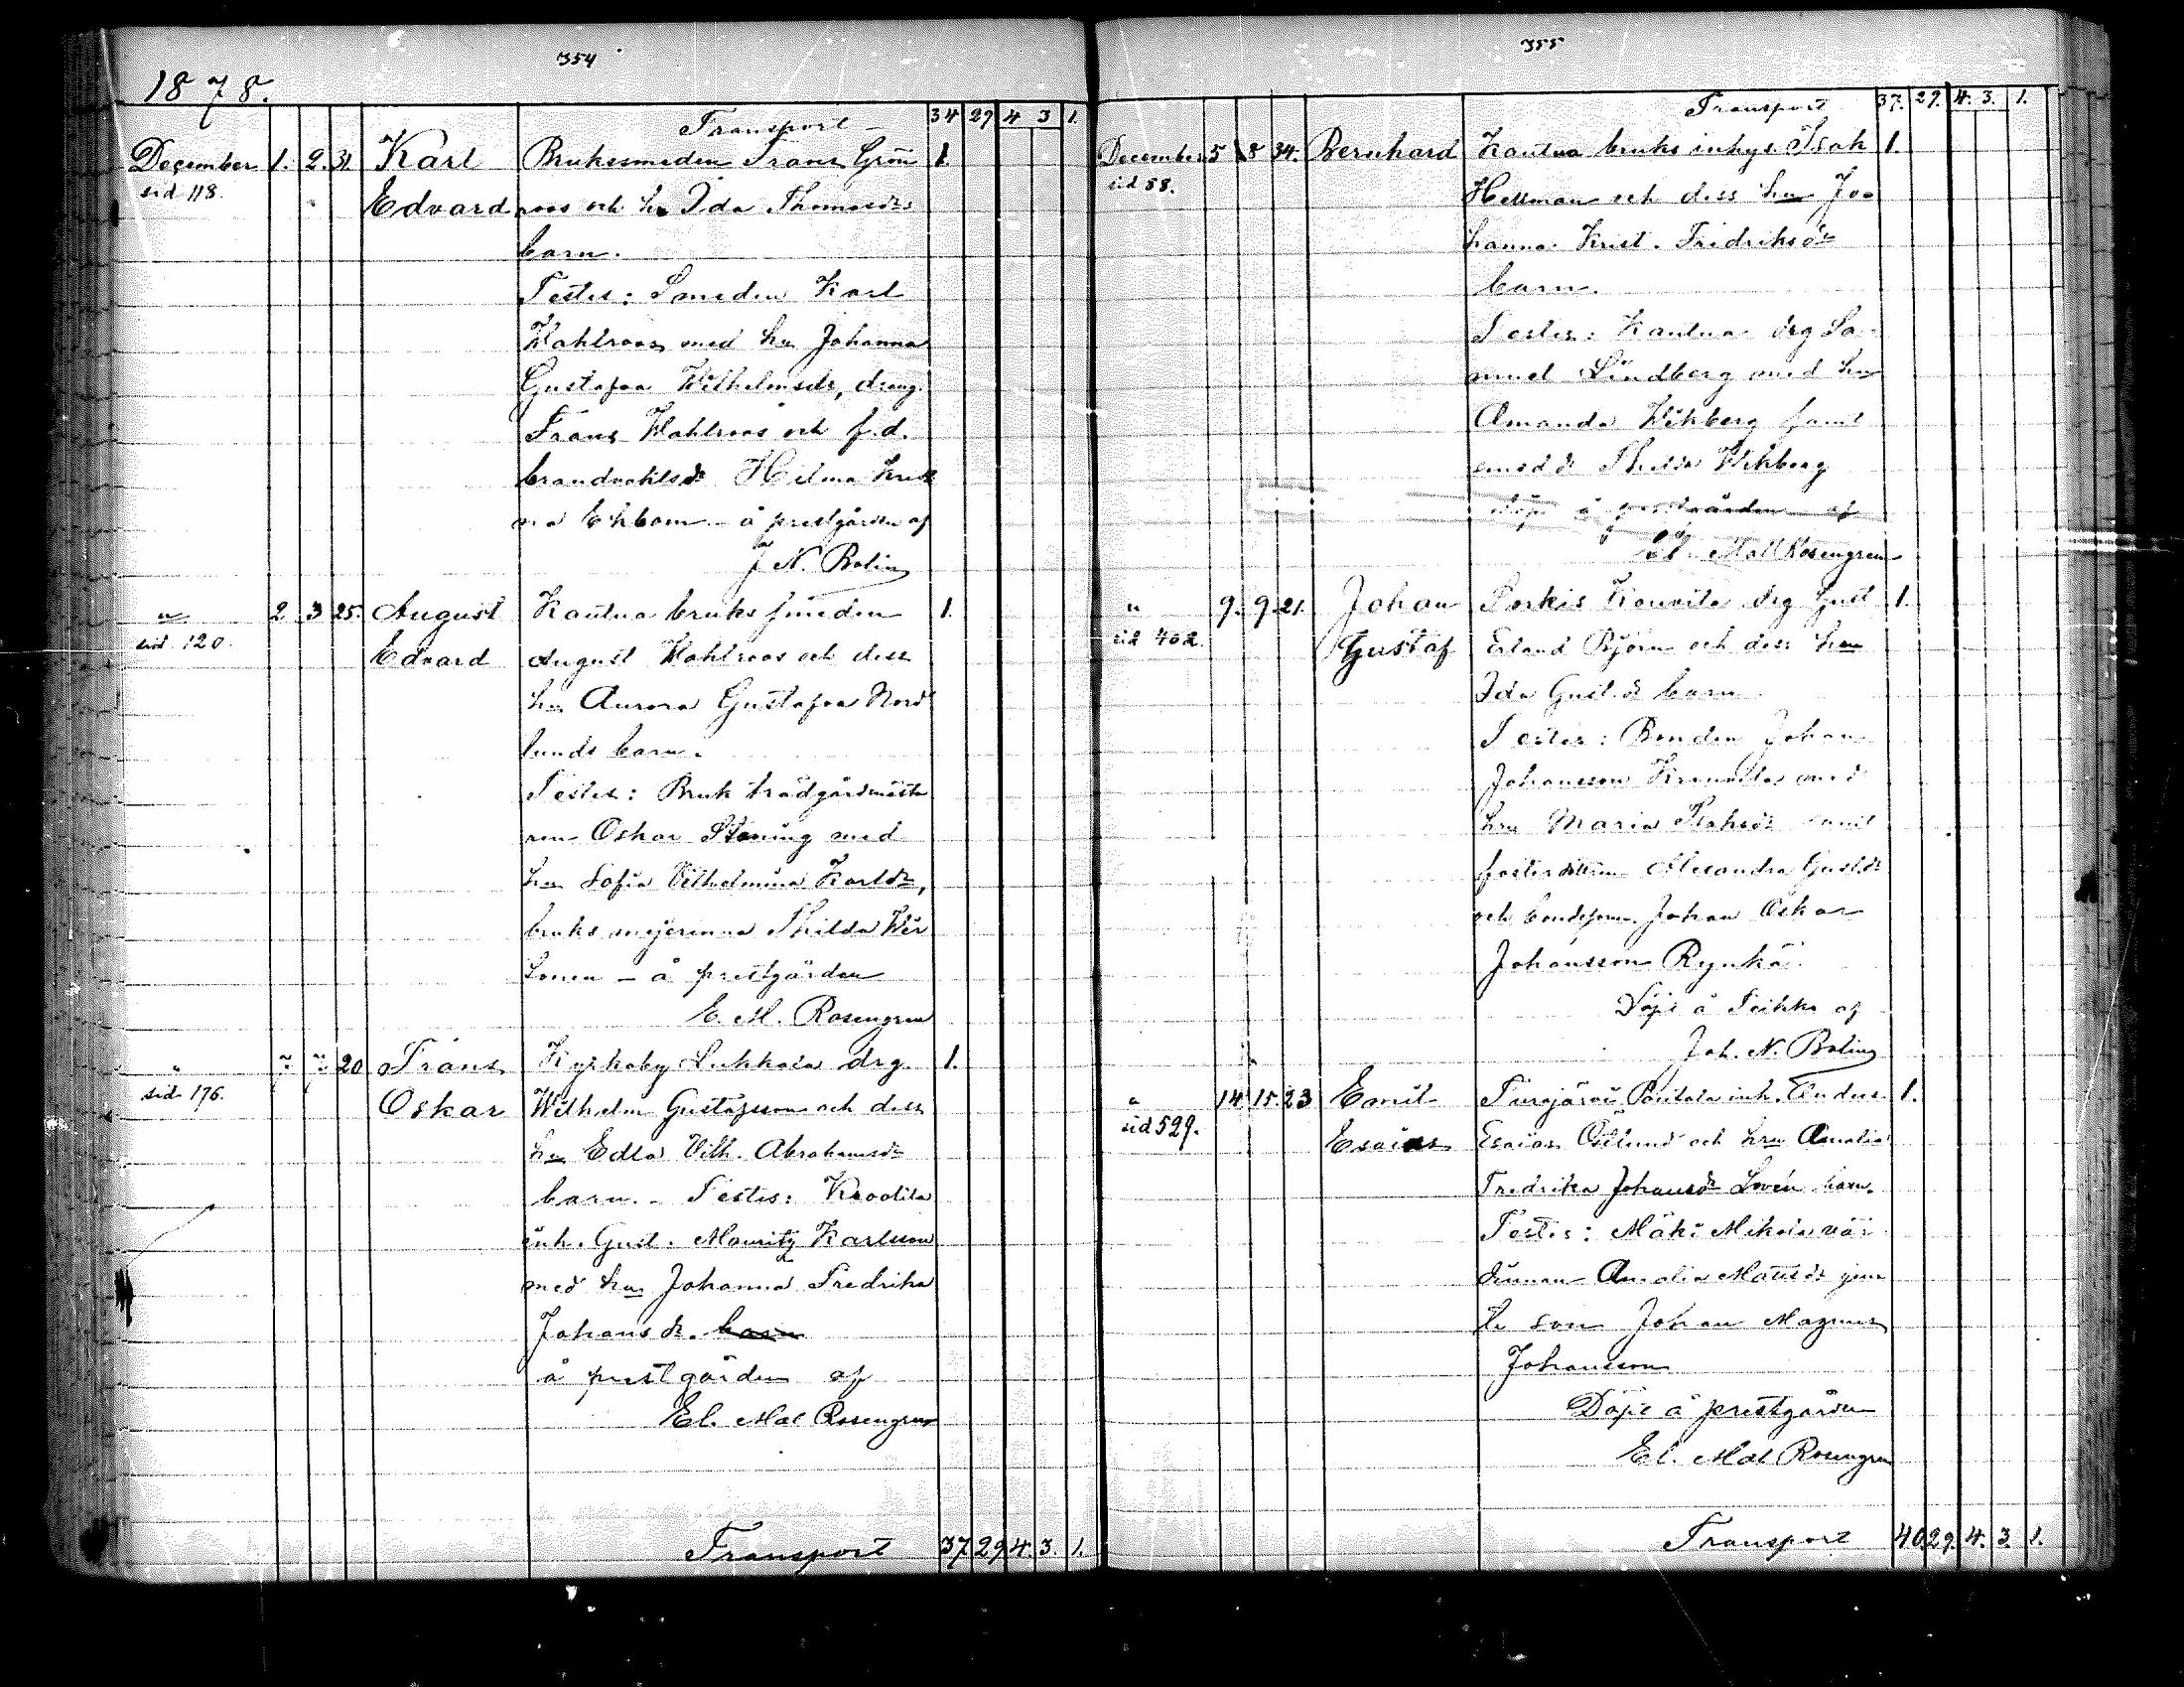 354
1878.
Transport 34 29 4 3 1.
December 1. 2. 31. Karl Bruksmeden Frans Grön 1.
sid 118. Edvard roos och hu Ida Thomasdr
barn.
Testes: Smeden Karl
Wahlroos med hu Johanna
Gustafva Wilhelmsdr, dräng.
Frans Wahlroos och f.d.
brandvaktsdr Hilma
na Ekbom - å prestgården af
J N. Bolin
" 2 3 25. August Kautua bruks smeden 1.
sid. 120. Edvard August Wahlroos och dess
hu Aurora Gustafva Nord
lunds barn.
Testes: Bruk trädgårdmästa
ren Oskar med
hu Sofia Vilhelmina Karlsdr,
bruks mejerinna Thilda Wir
tonen - å prestgården
E. M. Rosengren
" " " 20 Frans Kyrkoby drg. 1.
sid. 176. Oskar Wilhelm Gustafsson och dess
hu Edla Vilh. Abrahamsdr
barn. - Testes:
inh. Gust. Mauritz Karlsson
med hu Johanna Fredrika
Johansdr. barn
å prestgården af
El. Mat Rosengren
Transport 37. 29 4. 3. 1.
355
Transport 37. 29. 4. 3. 1.
December 5 8 34. Bernhard Kautua bruks inhys Isak 1.
sid 58. Hellman och dess hu Jo
hanna Krist. Fridriksdr
barn.
Testes: Kautua drg Sa
muel Lindberg med hu
Amanda Wikberg samt
Thilda Wikberg
döpt å prestgården af
El. Matt Rosengren
" 9. 9. 21. Johan drg Gust 1.
sid 402. Gustaf Erland Björn och dess hu
Ida Gust.dr barn.
Testes: Bonden Johan
Johansson med
hu Maria Isaksdr samt
fosterdottren Alexandra Gust.dr
och bondeson. Johan Oskar
Johansson Rynkä.
Döpt å af
Joh. N. Bolin
" 14 15. 23 Emil inh. Andus 1.
sid 529. Esaias Esaias Östlund och hu Amalia
Fredrika Johansdr Lovén barn.
Testes: Mäki Mikola vär
dinnan Amalia Matts.dr jem
te son Johan Magnus
Johansson
Döpt å prestgården
El. Mat Rosengren
Transport 40. 29. 4. 3. 1.